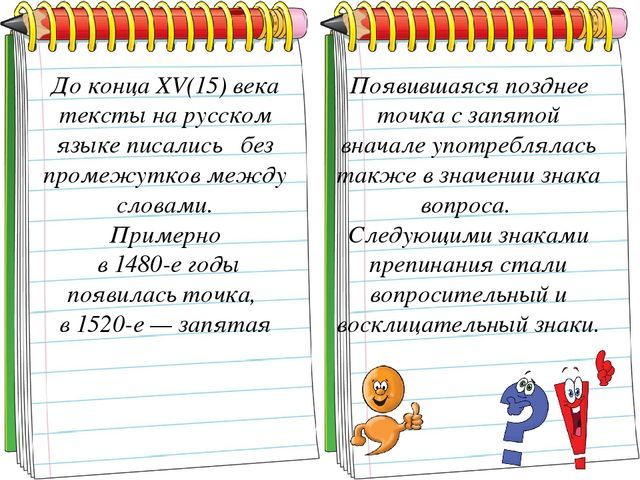 До конца XV(15) века
тексты на русском
языке писались без
промежутков между
словами.
Примерно
в 1480-е годы
появилась точка,
в 1520-е — запятая
Появившаяся позднее
точка с запятой
вначале употреблялась
также в значении знака
вопроса.
Следующими знаками
препинания стали
вопросительный и
восклицательный знаки.